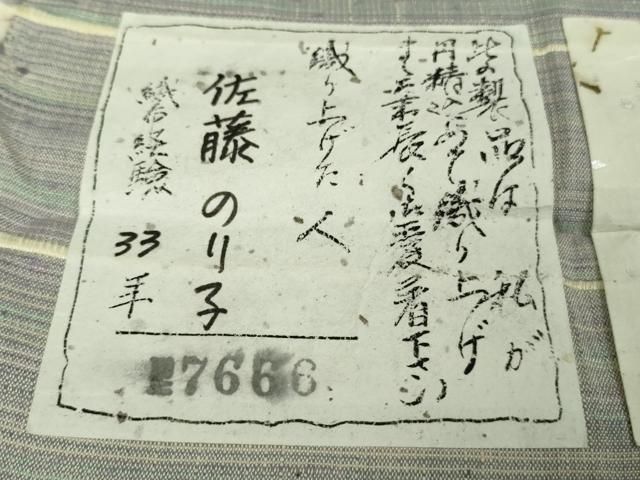 此の製品は 私が
丹精込めて織り上げ
ま 末長くご愛着下さい
織り上げた 人
佐藤 のり子
織布経験 33 年
7666